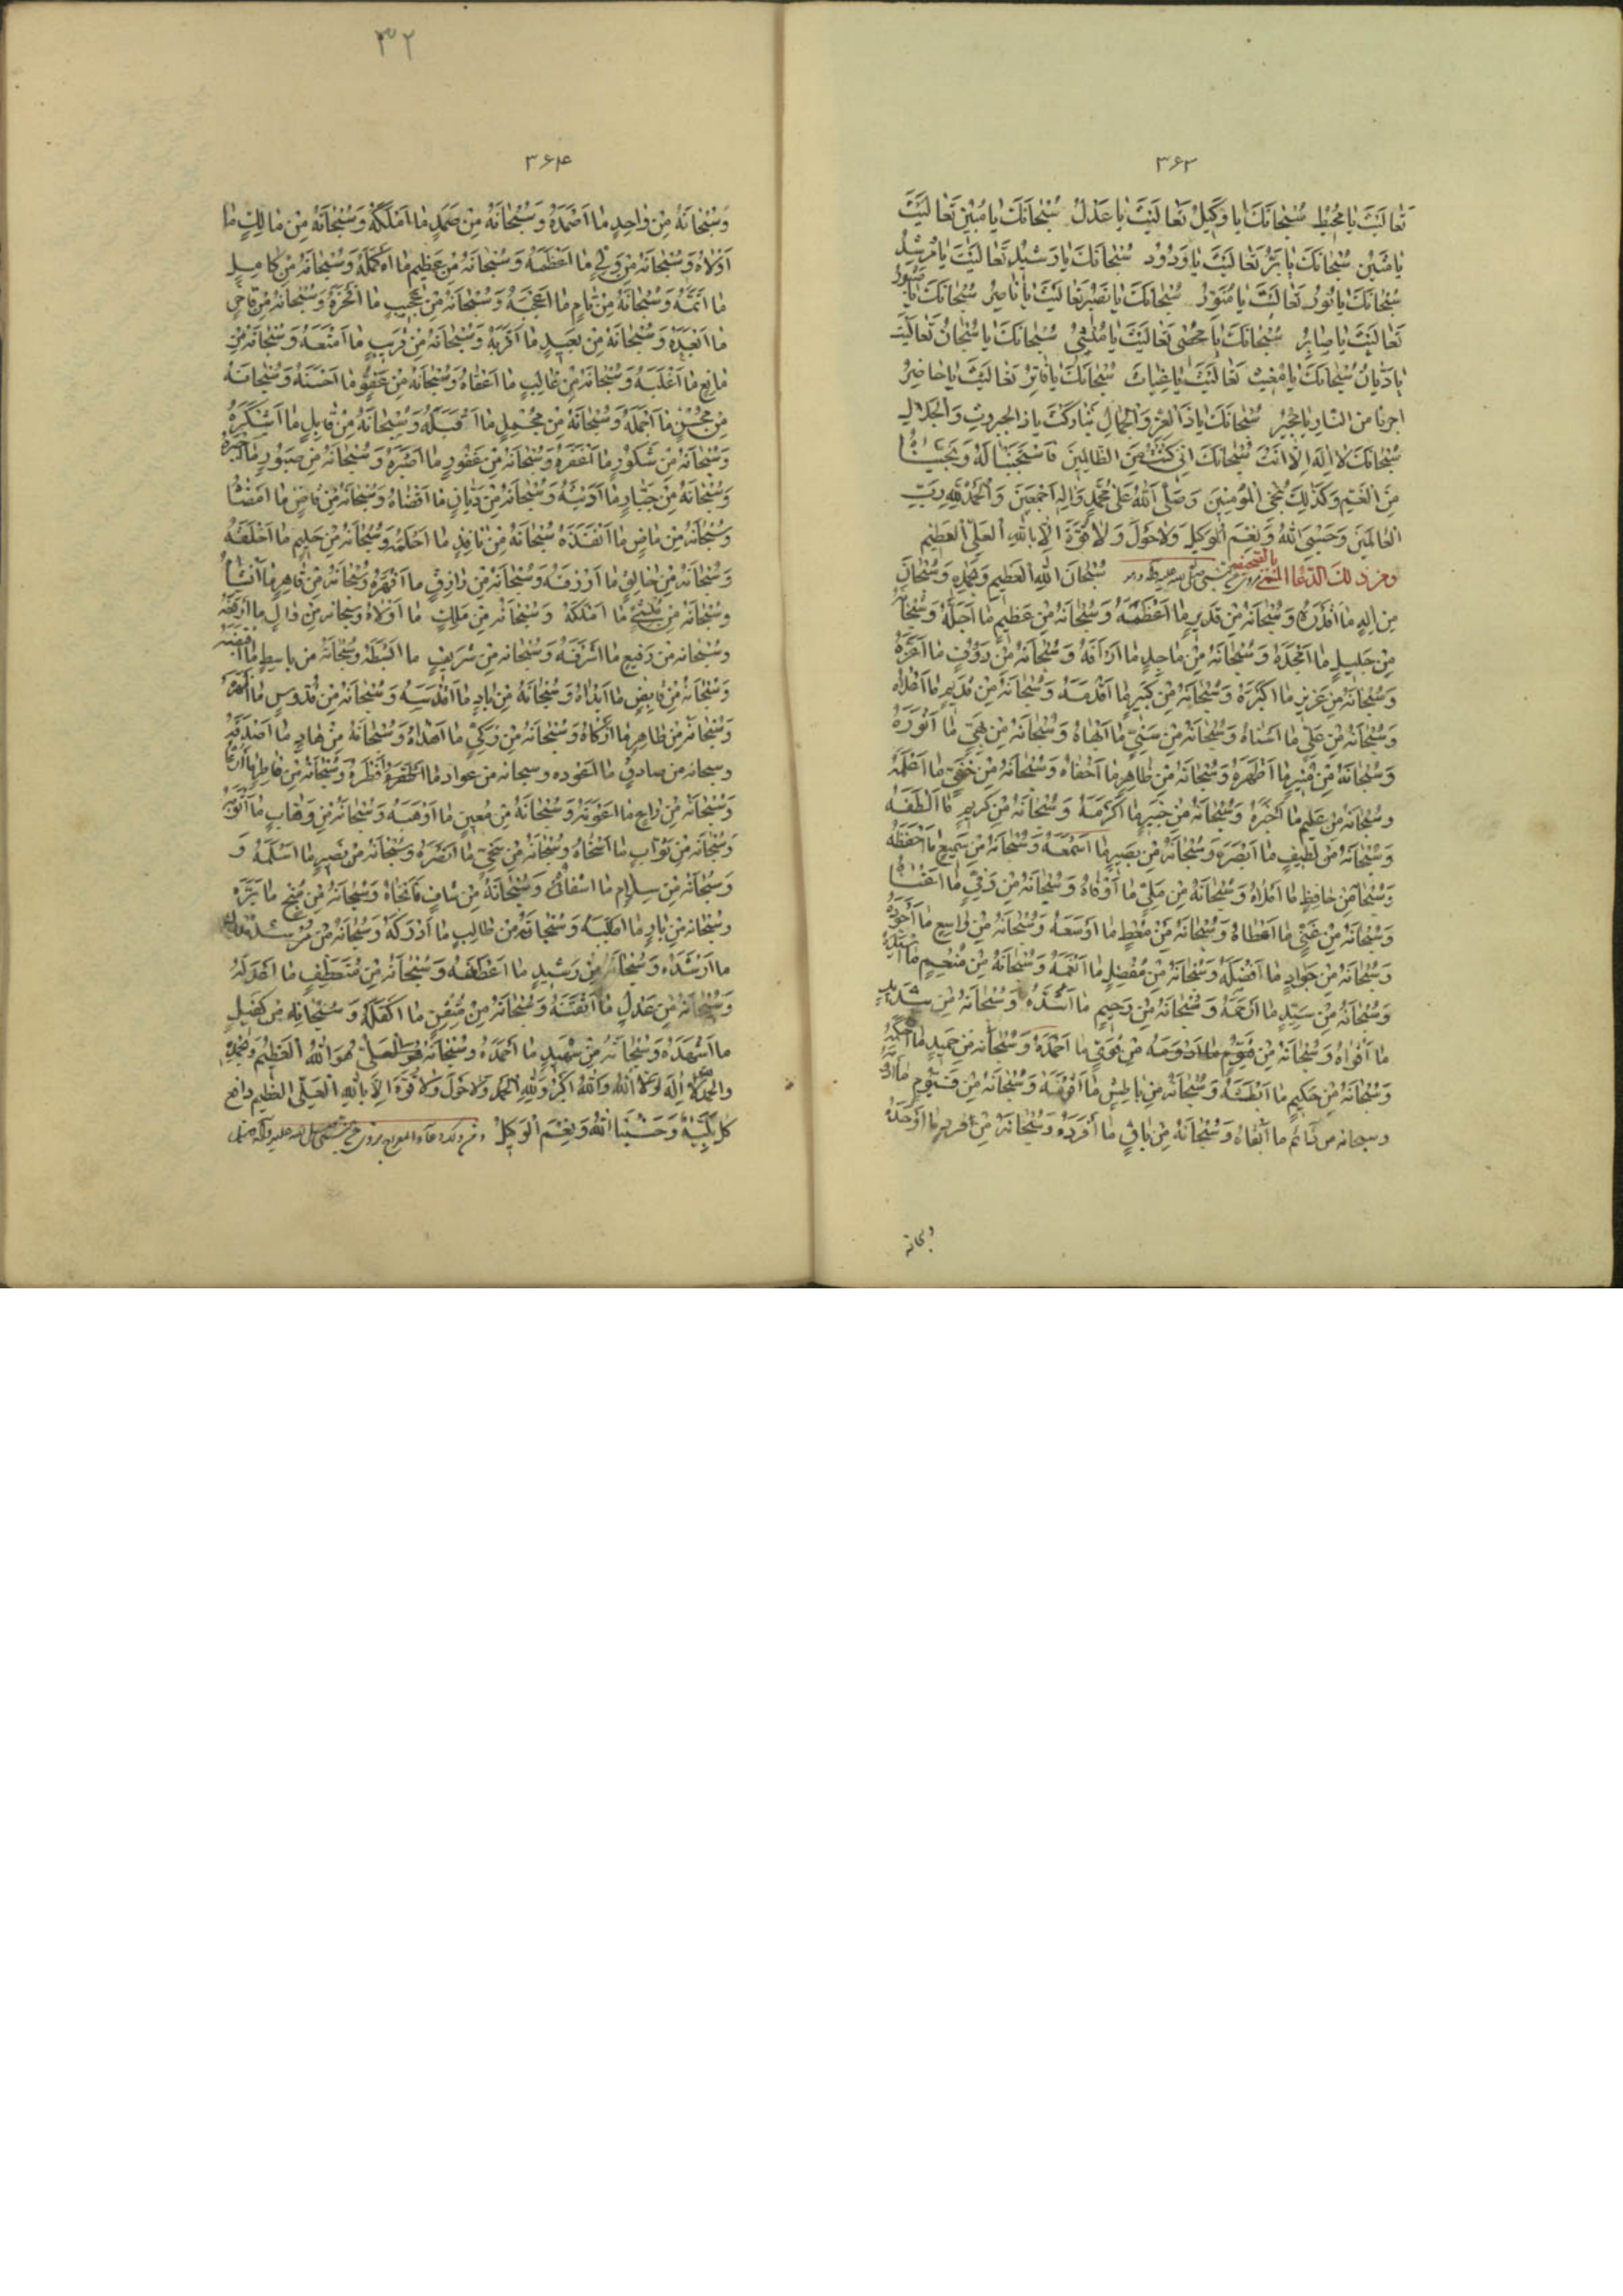 ۳۶۳
تَعالَیتَ یا مُحیطُ سُبْحانَکَ یا وَکیلُ تَعالَیتَ یا عَدْلُ سُبْحانَکَ یا مُبینُ تَعالَیتَ
یا مَتینُ سُبْحانَکَ یا بَرُّ تَعالَیتَ یا وَدُودُ سُبْحانَکَ یا رَشیدُ تَعالَیتَ یا مُرشِدُ
سُبْحانَکَ یا نُورُ تَعالَیتَ یا مُنَوِّرُ سُبْحانَکَ یا نَصیرُ تَعالَیتَ یا ناصِرُ سُبْحانَکَ یا صَبُورُ
تَعالَیتَ یا صابِرُ سُبْحانَکَ یا مُحْصی تَعالَیتَ یا مُنْشِئُ سُبْحانَکَ یا سُبْحانُ تَعالَیتَ
یا دَیّانُ سُبْحانَکَ یا مُغیثُ تَعالَیتَ یا غِیاثَ سُبْحانَکَ یا فاتِرُ تَعالَیتَ یا حاضِرُ
اجرنا من النّارِ یا مُجیرُ سُبْحانَکَ یا ذَا الْعِزِّ وَالْجَمالِ تَبارَکْتَ یا ذا الجبروتِ وَالْجَلالِ
سُبْحانَکَ لا اِلهَ اِلّا اَنْتَ سُبْحانَکَ اِنّی کُنْتُ مِنَ الظّالِمینَ فَاسْتَجَبْنا لَهُ وَنَجَّیْناهُ
مِنَ الْغَمِّ وَکَذلِکَ نُنْجِی الْمُؤْمِنینَ وَصَلَّی اللهُ عَلی مُحَمَّدٍ وَالِهِ اَجْمَعینَ وَالْحَمْدُ لِلّهِ رَبِّ
العالَمینَ وَحَسْبِیَ اللهُ وَنِعْمَ الْوَکیلُ وَلا حَوْلَ وَلا قُوَّةَ اِلّا بِاللهِ الْعَلِیِّ الْعَظیمِ
ومن ذلک الدّعا سُبْحانَ اللهِ الْعَظیمِ وَبِحَمْدِهِ وَسُبْحانَ
مِنْ اِلهٍ ما اَقْدَرَهُ وَسُبْحانَهُ مِنْ قَدیرٍ ما اَعْظَمَهُ وَسُبْحانَهُ مِنْ عَظیمٍ ما اَجَلَّهُ وَسُبْحانَهُ
مِنْ جَلیلٍ ما اَمْجَدَهُ وَسُبْحانَهُ مِنْ ماجِدٍ ما اَرْاَفَهُ وَسُبْحانَهُ مِنْ رَؤُفٍ ما اَعَزَّهُ
وَسُبْحانَهُ مِنْ عَزیزٍ ما اَکْبَرَهُ وَسُبْحانَهُ مِنْ کَبیرٍ ما اَقْدَمَهُ وَسُبْحانَهُ مِنْ قَدیمٍ ما اَعْلاهُ
وَسُبْحانَهُ مِنْ عَلِیٍّ ما اَسْناهُ وَسُبْحانَهُ مِنْ سَنِیٍّ ما اَبْهاهُ وَسُبْحانَهُ مِنْ بَهِیٍّ ما اَنْوَرَهُ
وَسُبْحانَهُ مِنْ مُنیرٍ ما اَظْهَرَهُ وَسُبْحانَهُ مِنْ ظاهِرٍ ما اَخْفاهُ وَسُبْحانَهُ مِنْ خَفِیٍّ ما اَعْلَمَهُ
وَسُبْحانَهُ مِنْ عَلیمٍ ما اَخْبَرَهُ وَسُبْحانَهُ مِنْ خَبیرٍ ما اَکْرَمَهُ وَسُبْحانَهُ مِنْ کَریمٍ ما اَلْطَفَهُ
وَسُبْحانَهُ مِنْ لَطیفٍ ما اَبْصَرَهُ وَسُبْحانَهُ مِنْ بَصیرٍ ما اَسْمَعَهُ وَسُبْحانَهُ مِنْ سَمیعٍ ما اَحْفَظَهُ
وَسُبْحانَهُ مِنْ حافِظٍ ما اَمْلاهُ وَسُبْحانَهُ مِنْ مَلِیٍّ ما اَوْفاهُ وَسُبْحانَهُ مِنْ وَفِیٍّ ما اَغْناهُ
وَسُبْحانَهُ مِنْ غَنِیٍّ ما اَعْطاهُ وَسُبْحانَهُ مِنْ مُعْطٍ ما اَوْسَعَهُ وَسُبْحانَهُ مِنْ واسِعٍ ما اَجْوَدَهُ
وَسُبْحانَهُ مِنْ جَوادٍ ما اَفْضَلَهُ وَسُبْحانَهُ مِنْ مُفْضِلٍ ما اَنْعَمَهُ وَسُبْحانَهُ مِنْ مُنْعِمٍ ما اَسْیَدَهُ
وَسُبْحانَهُ مِنْ سَیِّدٍ ما اَرْحَمَهُ وَسُبْحانَهُ مِنْ رَحیمٍ ما اَشَدَّهُ وَسُبْحانَهُ مِنْ شَدیدٍ
ما اَقْواهُ وَسُبْحانَهُ مِنْ قَوِیٍّ ما اَحْمَدَهُ وَسُبْحانَهُ مِنْ حَمیدٍ ما اَحْکَمَهُ
وَسُبْحانَهُ مِنْ حَکیمٍ ما اَبْطَشَهُ وَسُبْحانَهُ مِنْ باطِشٍ ما اَقْوَمَهُ وَسُبْحانَهُ مِنْ قَیُّومٍ ما
وسبحانه من دائم ما اَبْقاهُ وَسُبْحانَهُ مِنْ باقٍ ما اَفْرَدَهُ وَسُبْحانَهُ مِنْ فردٍ ما اَوْحَدَهُ
وسبحانه
۳۲
۳۶۴
وَسُبْحانَهُ مِنْ واحِدٍ ما اَصْمَدَهُ وَسُبْحانَهُ مِنْ صَمَدٍ ما اَمْلَکَهُ وَسُبْحانَهُ مِنْ مالِکٍ ما
اَوْلاهُ وَسُبْحانَهُ مِنْ وَلِیٍّ ما اَعْظَمَهُ وَسُبْحانَهُ مِنْ عَظیمٍ ما اَکْمَلَهُ وَسُبْحانَهُ مِنْ کامِلٍ
ما اَتَمَّهُ وَسُبْحانَهُ مِنْ تامٍ ما اَعْجَبَهُ وَسُبْحانَهُ مِنْ عَجیبٍ ما اَفْخَرَهُ وَسُبْحانَهُ مِنْ فاخِرٍ
ما اَبْعَدَهُ وَسُبْحانَهُ مِنْ بَعیدٍ ما اَقْرَبَهُ وَسُبْحانَهُ مِنْ قَریبٍ ما اَمْنَعَهُ وَسُبْحانَهُ مِنْ
مانِعٍ ما اَغْلَبَهُ وَسُبْحانَهُ مِنْ غالِبٍ ما اَعْفاهُ وَسُبْحانَهُ مِنْ عَفُوٍّ ما اَحْسَنَهُ وَسُبْحانَهُ
مِنْ مُحْسِنٍ ما اَجْمَلَهُ وَسُبْحانَهُ مِنْ مُجْمِلٍ ما اَقْبَلَهُ وَسُبْحانَهُ مِنْ قابِلٍ ما اَشْکَرَهُ
وَسُبْحانَهُ مِنْ شَکُورٍ ما اَغْفَرَهُ وَسُبْحانَهُ مِنْ غَفُورٍ ما اَصْبَرَهُ وَسُبْحانَهُ مِنْ صَبُورٍ ما اَجْبَرَهُ
وَسُبْحانَهُ مِنْ جَبّارٍ ما اَدْیَنَهُ وَسُبْحانَهُ مِنْ دَیّانٍ ما اَقْضاهُ وَسُبْحانَهُ مِنْ قاضٍ ما اَمْضاهُ
وَسُبْحانَهُ مِنْ ماضٍ ما اَنْفَذَهُ سُبْحانَهُ مِنْ نافِذٍ ما اَحْلَمَهُ وَسُبْحانَهُ مِنْ حَلیمٍ ما اَخْلَقَهُ
وَسُبْحانَهُ مِنْ خالِقٍ ما اَرْزَقَهُ وَسُبْحانَهُ مِنْ رازِقٍ ما اَقْهَرَهُ وَسُبْحانَهُ مِنْ قاهِرٍ ما اَنْشَأَهُ
وَسُبْحانَهُ مِنْ مُنْشِئٍ ما اَمْلَکَهُ وَسُبْحانَهُ مِنْ مَلِکٍ ما اَوْلاهُ وَسُبْحانَهُ مِنْ والٍ ما اَرْفَعَهُ
وَسُبْحانَهُ مِنْ رَفیعٍ ما اَشْرَفَهُ وَسُبْحانَهُ مِنْ شَریفٍ ما اَبْسَطَهُ وَسُبْحانَهُ مِنْ باسِطٍ ما اَقْبَضَهُ
وَسُبْحانَهُ مِنْ قابِضٍ ما اَبْداهُ وَسُبْحانَهُ مِنْ بادٍ ما اَقْدَسَهُ وَسُبْحانَهُ مِنْ قُدُّوسٍ ما اَطْهَرَهُ
وَسُبْحانَهُ مِنْ طاهِرٍ ما اَزْکاهُ وَسُبْحانَهُ مِنْ زَکِیٍّ ما اَهْداهُ وَسُبْحانَهُ مِنْ هادٍ ما اَصْدَقَهُ
وسبحانه من صادقٍ ما اَعْوَده وسبحانه من عواد ما اَفْطَرَهُ وَسُبْحانَهُ مِنْ فاطِرٍ ما اَرْعاهُ
وَسُبْحانَهُ مِنْ راعٍ ما اَعْوَنَهُ وَسُبْحانَهُ مِنْ مُعینٍ ما اَوْهَبَهُ وَسُبْحانَهُ مِنْ وَهّابٍ ما اَتْوَبَهُ
وَسُبْحانَهُ مِنْ تَوّابٍ ما اَسْخاهُ وَسُبْحانَهُ مِنْ سَخِیٍّ ما اَنْصَرَهُ وَسُبْحانَهُ مِنْ نَصیرٍ ما اَسْلَمَهُ وَ
وَسُبْحانَهُ مِنْ سلامٍ ما اَشْفاهُ وَسُبْحانَهُ مِنْ شافٍ ما اَنْجاهُ وَسُبْحانَهُ مِنْ مُنْجٍ ما اَبَرَّهُ
وَسُبْحانَهُ مِنْ بارٍ ما اَطْلَبَهُ وَسُبْحانَهُ مِنْ طالِبٍ ما اَدْرَکَهُ وَسُبْحانَهُ مِنْ
ما اَرْشَدَهُ وَسُبْحانَهُ مِنْ رَشیدٍ ما اَعْطَفَهُ وَسُبْحانَهُ مِنْ مُتَعَطِّفٍ ما اَعْدَلَهُ
وَسُبْحانَهُ مِنْ عَدْلٍ ما اَتْقَنَهُ وَسُبْحانَهُ مِنْ مُتْقِنٍ ما اَکْفَلَهُ وَسُبْحانَهُ مِنْ کَفیلٍ
ما اَشْهَدَهُ وَسُبْحانَهُ مِنْ شَهیدٍ ما اَحْمَدَهُ وَسُبْحانَهُ هُوَ اللهُ الْعَظیمُ وَبِحَمْدِهِ
وَالْحَمْدُ لِلّهِ وَلا اِلهَ اِلّا اللهُ وَاللهُ اَکْبَرُ وَلِلّهِ الْحَمْدُ وَلا حَوْلَ وَلا قُوَّةَ اِلّا بِاللهِ الْعَلِیِّ الْعَظیمِ دافع
کُلِّ بَلِیَّةٍ وَحَسْبُنا اللهُ وَنِعْمَ الْوَکیلُ